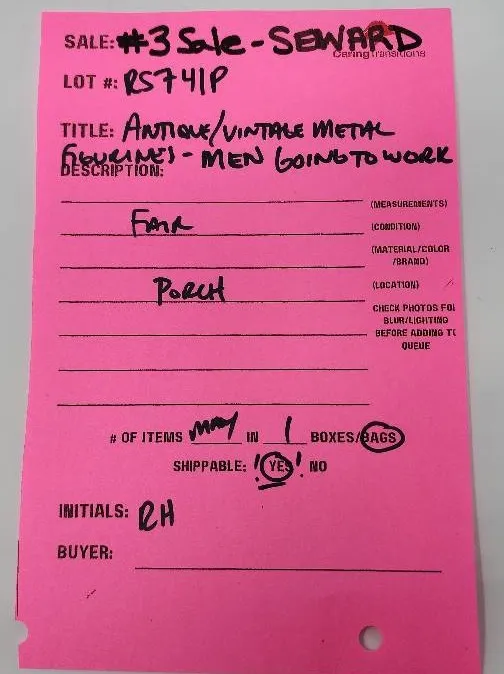 SALE: #3 Sale - SEWARD
Caring Transitions
LOT #: RS741P
TITLE: ANTIQUE/VINTAGE METAL
FIGURINES - MEN GOING TO WORK
DESCRIPTION:
(MEASUREMENTS)
FAIR (CONDITION)
(MATERIAL/COLOR
/BRAND)
PORCH (LOCATION)
CHECK PHOTOS FO
BLUR/LIGHTING
BEFORE ADDING T
QUEUE
# OF ITEMS MANY IN 1 BOXES/BAGS
SHIPPABLE: !YES! NO
INITIALS: RH
BUYER: